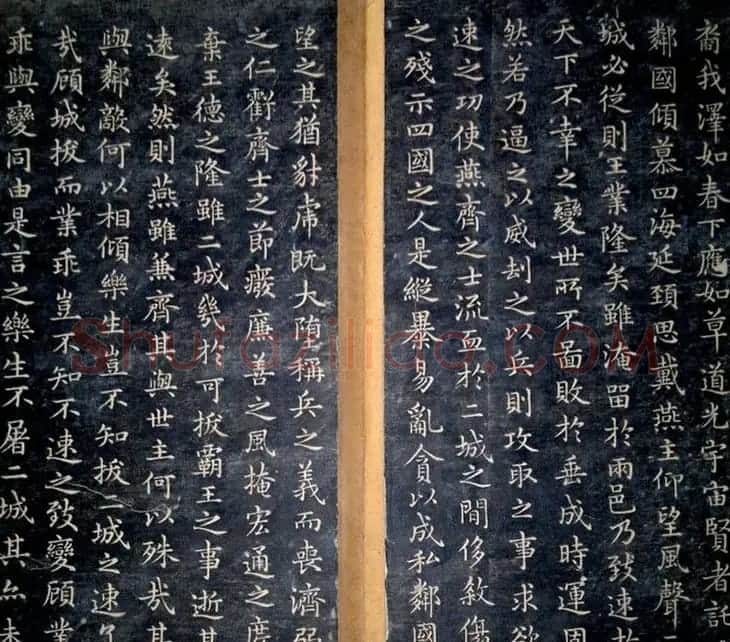 裔我澤如春下應如草道光宇宙賢者託
鄰國傾慕四海延頸思戴燕主仰望風聲
城必從則王業隆矣雖淹留於兩邑乃致速
天下不幸之變世所不啚敗於垂成時運固
然若乃逼之以威刦之以兵則攻取之事求欲
速之功使燕齊之士流血於二城之間侈敘傷
之殘示四國之人是縱暴易亂貪以成私鄰國
望之其猶豺虎既大墮稱兵之義而喪濟弱
之仁虧齊士之節癈廉善之風掩宏通之度
棄王德之隆雖二城幾於可拔霸王之事逝其
遠矣然則燕雖兼齊其與世主何以殊哉其
與鄰敵何以相傾樂生豈不知拔二城之速了
哉顧城拔而業乖豈不知不速之致變顧業
乖與變同由是言之樂生不屠二城其亦未
Shufaziliao.COM